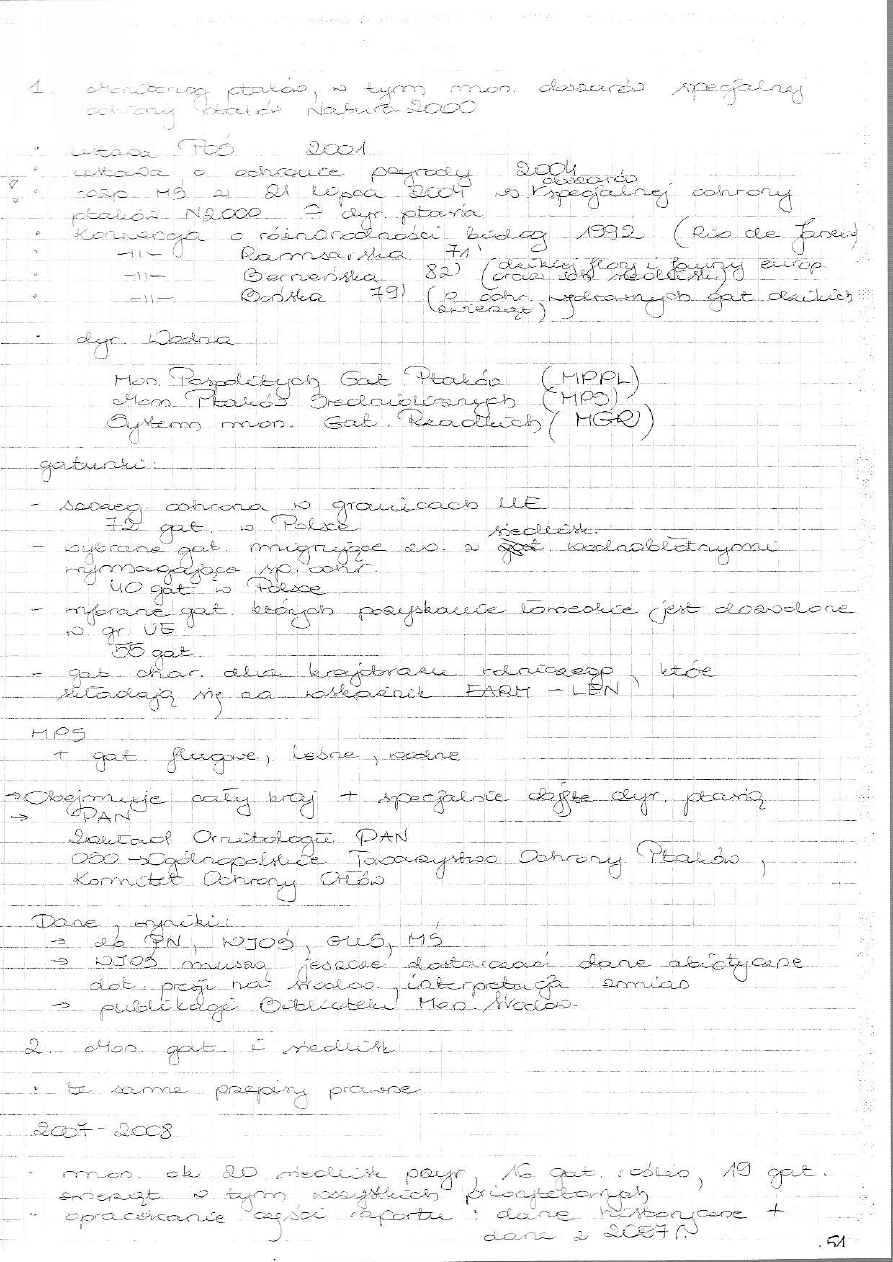 1. Monitoring ptaków, w tym mon. obszarów specjalnej
ochrony ptaków Natura 2000
· ustawa POŚ 2001
· ustawa o ochronie przyrody 2004
· rozp MŚ z 21 lipca 2004 ws obszarów specjalnej ochrony
ptaków N2000 → dyr. ptasia
· Konwencja o różnorodności biolog 1992 (Rio de Janeiro)
· –11– Ramsarska 71'
· –11– Berneńska 82' (dzikiej flory i fauny europ.
oraz ich siedlisk)
· –11– Bońska 79' (o ochr. wędrownych gat dzikich
zwierząt)
· dyr. Wodna
Mon. Pospolitych Gat Ptaków (MPPL)
Mon. Ptaków Średniolicznych (MPS)
System mon. Gat. Rzadkich (MGR)
gatunki:
- szczeg ochrona w granicach UE
72 gat. w Polsce
- wybrane gat. migrujące zw. z siedlisk. wodnobłotnymi
wymagające sp. ochr.
40 gat w Polsce
- wybrane gat. których pozyskanie łowieckie jest dozwolone
w gr UE
55 gat.
- gat char. dla krajobrazu rolniczego, które
składają się na wskaźnik FARM – LBN
MPS
+ gat. flugowe, leśne, wodne
→ Obejmuje cały kraj + specjalnie dyr. ptasią
→ PAN
Zakład Ornitologii PAN
OSO → Ogólnopolskie Towarzystwo Ochrony Ptaków,
Komitet Ochrony Orłów
Dane, wyniki:
→ do PN, WIOŚ, GUS, MŚ
→ WIOŚ muszą jeszcze dostarczać dane abiotyczne
dot. presji na środow, interpretacja zmian
→ publikacji Biblioteki Mon. Środow.
2. Mon. gat i siedlisk
: te same przepisy prawne
2007-2008
· mon. ok 20 siedlisk przyr, 16 gat. roślin, 19 gat.
zwierząt w tym wszystkich priorytetowych
· opracowanie części raportu : dane historyczne +
dane z 2007 N
51